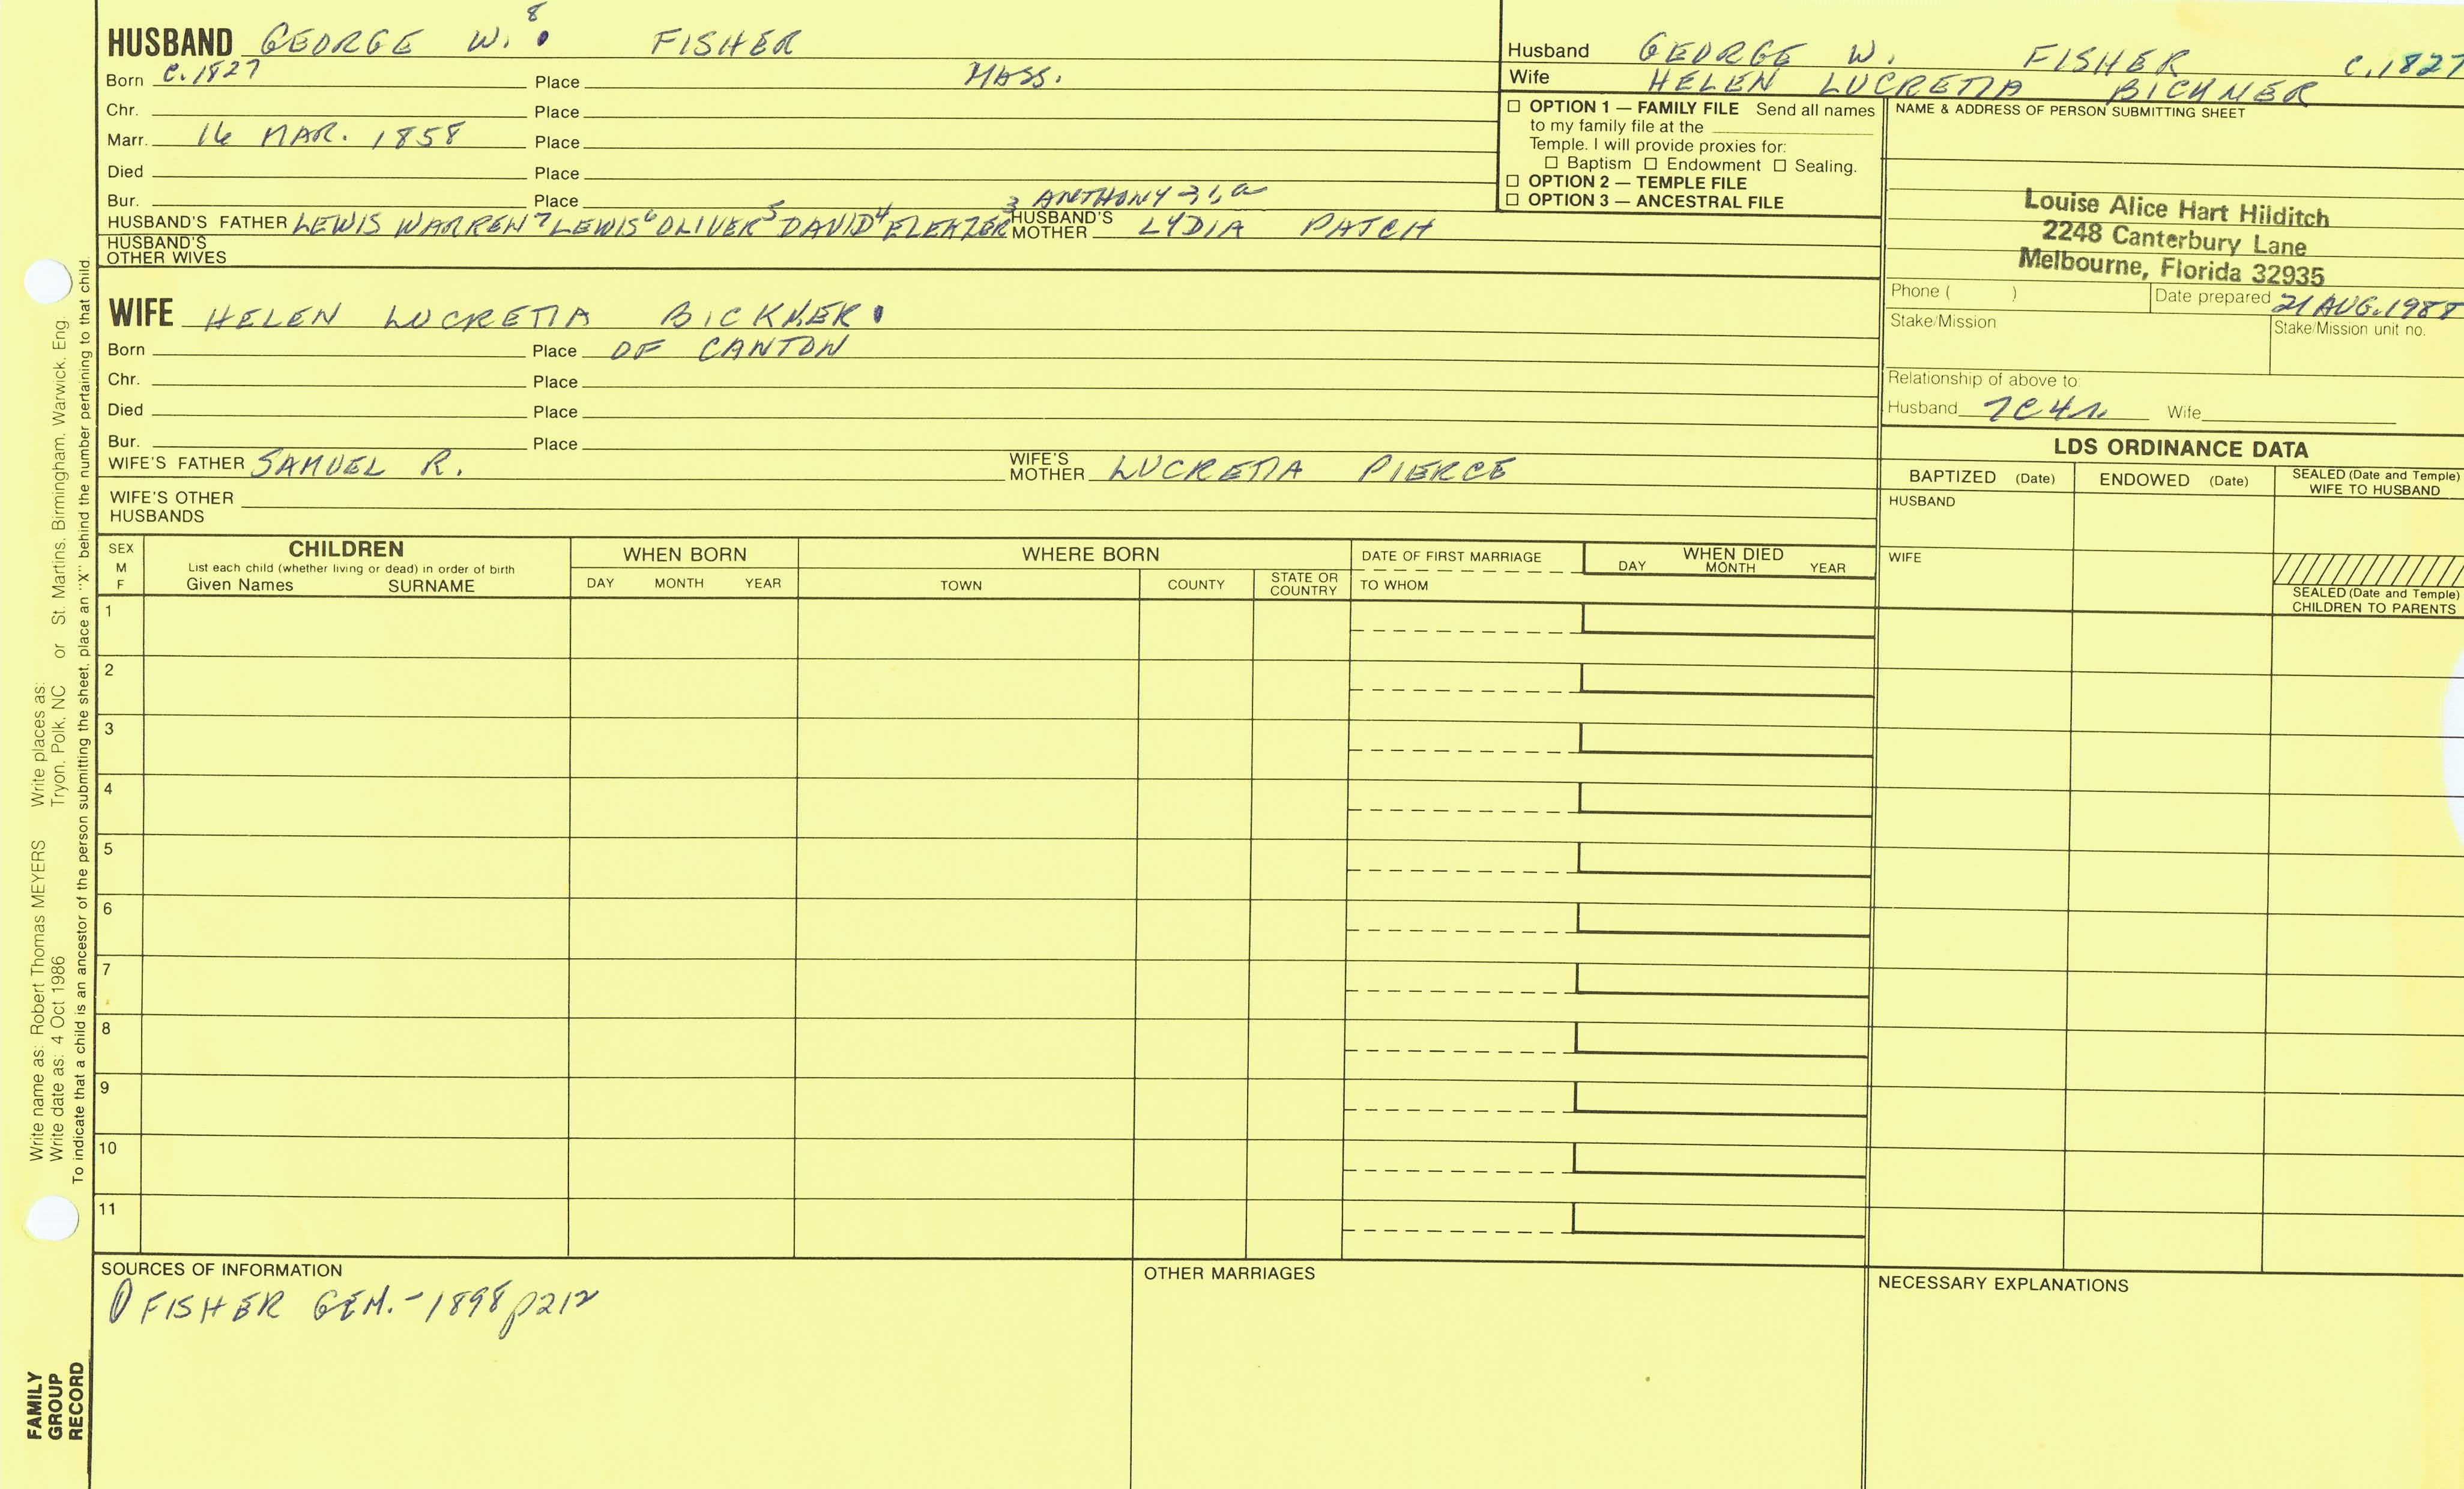 HUSBAND GEORGE W. 8 FISHER
Born c. 1827 Place MASS.
Chr. Place
Marr. 16 MAR. 1858 Place
Died Place
Bur. Place
HUSBAND'S FATHER LEWIS WARREN 7 LEWIS 6 OLIVER 5 DAVID 4 ELEAZER 3 ANTHONY HUSBAND'S MOTHER LYDIA PATCH
HUSBAND'S OTHER WIVES
WIFE HELEN LUCRETIA BICKNER
Born Place OF CANTON
Chr. Place
Died Place
Bur. Place
WIFE'S FATHER SAMUEL R. WIFE'S MOTHER LUCRETIA PIERCE
WIFE'S OTHER HUSBANDS
Husband GEORGE W. FISHER C. 1827
Wife HELEN LUCRETIA BICKNER
☐ OPTION 1 — FAMILY FILE Send all names
to my family file at the
Temple. I will provide proxies for:
☐ Baptism ☐ Endowment ☐ Sealing.
☐ OPTION 2 — TEMPLE FILE
☐ OPTION 3 — ANCESTRAL FILE
NAME & ADDRESS OF PERSON SUBMITTING SHEET
Louise Alice Hart Hilditch
2248 Canterbury Lane
Melbourne, Florida 32935
Phone ( ) Date prepared 21 AUG. 1988
Stake/Mission Stake/Mission unit no.
Relationship of above to:
Husband 7C4r. Wife
LDS ORDINANCE DATA
BAPTIZED (Date) ENDOWED (Date) SEALED (Date and Temple) WIFE TO HUSBAND
HUSBAND
WIFE
SEALED (Date and Temple) CHILDREN TO PARENTS
SEX M F
CHILDREN
List each child (whether living or dead) in order of birth
Given Names SURNAME
WHEN BORN
DAY MONTH YEAR
WHERE BORN
TOWN COUNTY STATE OR COUNTRY
DATE OF FIRST MARRIAGE
TO WHOM
WHEN DIED
DAY MONTH YEAR
1
2
3
4
5
6
7
8
9
10
11
SOURCES OF INFORMATION
FISHER GEN.-1898 p212
OTHER MARRIAGES
NECESSARY EXPLANATIONS
Write name as: Robert Thomas MEYERS Write places as: or St. Martins, Birmingham, Warwick, Eng.
Write date as: 4 Oct 1986 Tryon, Polk, NC
To indicate that a child is an ancestor of the person submitting the sheet, place an "X" behind the number pertaining to that child.
FAMILY
GROUP
RECORD